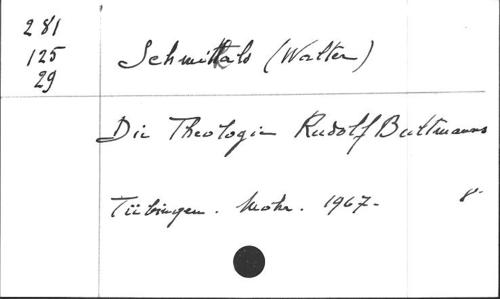 281
125
29
Schmithals (Walter)
Die Theologie Rudolf Bultmanns
Tübingen. Mohr. 1967- 8°